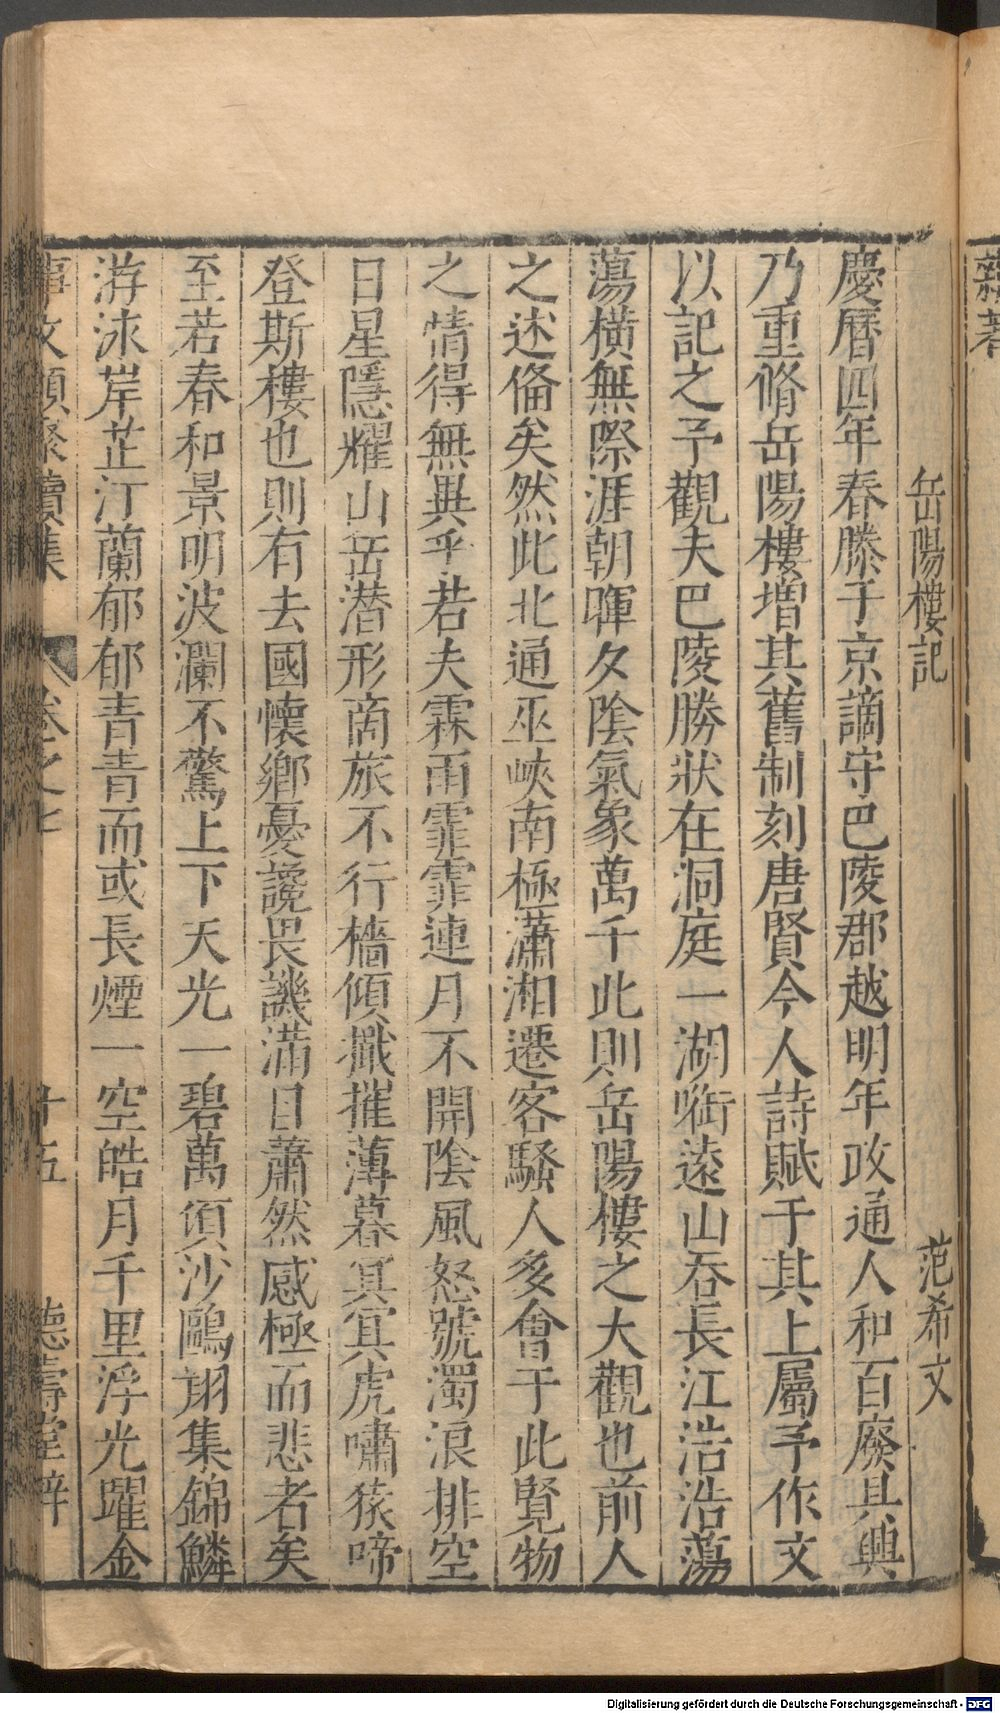 雜著
岳陽樓記　范希文
慶曆四年春滕子京謫守巴陵郡越明年政通人和百廢具興
乃重脩岳陽樓增其舊制刻唐賢今人詩賦于其上屬予作文
以記之予觀夫巴陵勝狀在洞庭一湖啣遠山吞長江浩浩蕩
蕩橫無際涯朝暉夕陰氣象萬千此則岳陽樓之大觀也前人
之述俻矣然此北通巫峽南極瀟湘遷客騷人多會于此覽物
之情得無異乎若夫霖雨霏霏連月不開陰風怒號濁浪排空
日星隱耀山岳潛形商旅不行檣傾摧摧薄暮冥冥虎嘯猿啼
登斯樓也則有去國懷鄉憂讒畏譏滿目蕭然感極而悲者矣
至若春和景明波瀾不驚上下天光一碧萬頃沙鷗翔集錦鱗
游泳岸芷汀蘭郁郁青青而或長煙一空皓月千里浮光躍金
事文類聚續集　卷之七　十五　德壽堂梓
Digitalisierung gefördert durch die Deutsche Forschungsgemeinschaft - DFG